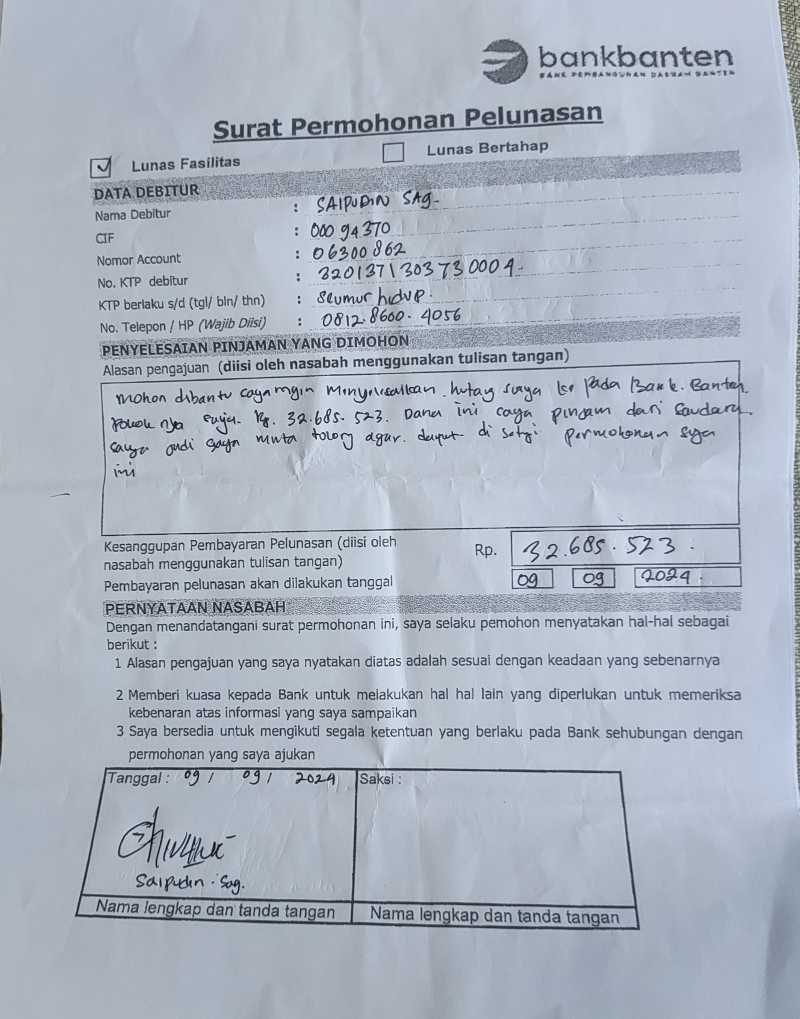 bankbanten
BANK PEMBANGUNAN DAERAH BANTEN
Surat Permohonan Pelunasan
✓ Lunas Fasilitas Lunas Bertahap
DATA DEBITUR
Nama Debitur : SAIPUDIN SAg-
CIF : 000 94370
Nomor Account : 06300862
No. KTP debitur : 3201371303730004-
KTP berlaku s/d (tgl/ bln/ thn) : Seumur hidup.
No. Telepon / HP (Wajib Diisi) : 0812.8600.4056
PENYELESAIAN PINJAMAN YANG DIMOHON
Alasan pengajuan (diisi oleh nasabah menggunakan tulisan tangan)
Mohon dibantu saya ingin menyelesaikan hutang saya ke pada Bank. Banten
pokok nya saja. Rp. 32.685.523. Dana ini saya pinjam dari Saudara
saya jadi saya minta tolong agar. dapat di setuji permohonan saya
ini
Kesanggupan Pembayaran Pelunasan (diisi oleh
nasabah menggunakan tulisan tangan) Rp. 32.685.523.
Pembayaran pelunasan akan dilakukan tanggal 09 09 2024.
PERNYATAAN NASABAH
Dengan menandatangani surat permohonan ini, saya selaku pemohon menyatakan hal-hal sebagai
berikut :
1 Alasan pengajuan yang saya nyatakan diatas adalah sesuai dengan keadaan yang sebenarnya
2 Memberi kuasa kepada Bank untuk melakukan hal hal lain yang diperlukan untuk memeriksa
kebenaran atas informasi yang saya sampaikan
3 Saya bersedia untuk mengikuti segala ketentuan yang berlaku pada Bank sehubungan dengan
permohonan yang saya ajukan
Tanggal : 09 / 09 / 2024 Saksi :
Saipudin. Sag.
Nama lengkap dan tanda tangan Nama lengkap dan tanda tangan